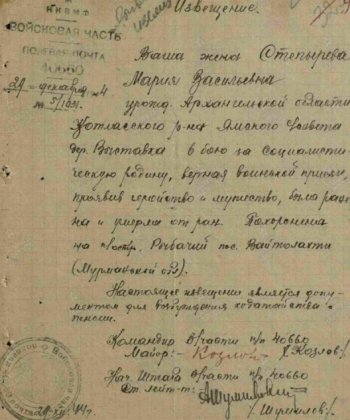 Извещение.
НКВМФ
ВОЙСКОВАЯ ЧАСТЬ
ПОЛЕВАЯ ПОЧТА
40660
29 декабря 4
№
Ваша жена Степырева
Мария Васильевна
урожд. Архангельской области
Котласского р-на Ямского с/совета
дер. Выставка в бою за Социалисти-
ческую родину, верная воинской присяге,
проявив геройство и мужество, была ране-
на и умерла от ран. Похоронена
на п/остр. Рыбачий пос. Вайтолахти
(Мурманской обл).
Настоящее извещение является доку-
ментом для возбуждения ходатайства о
пенсии.
Командир в/части п/п 40660
Майор:- Козлов /Козлов/
Нач Штаба в/части п/п 40660
Ст. лейт-т:
/Шурмилов/